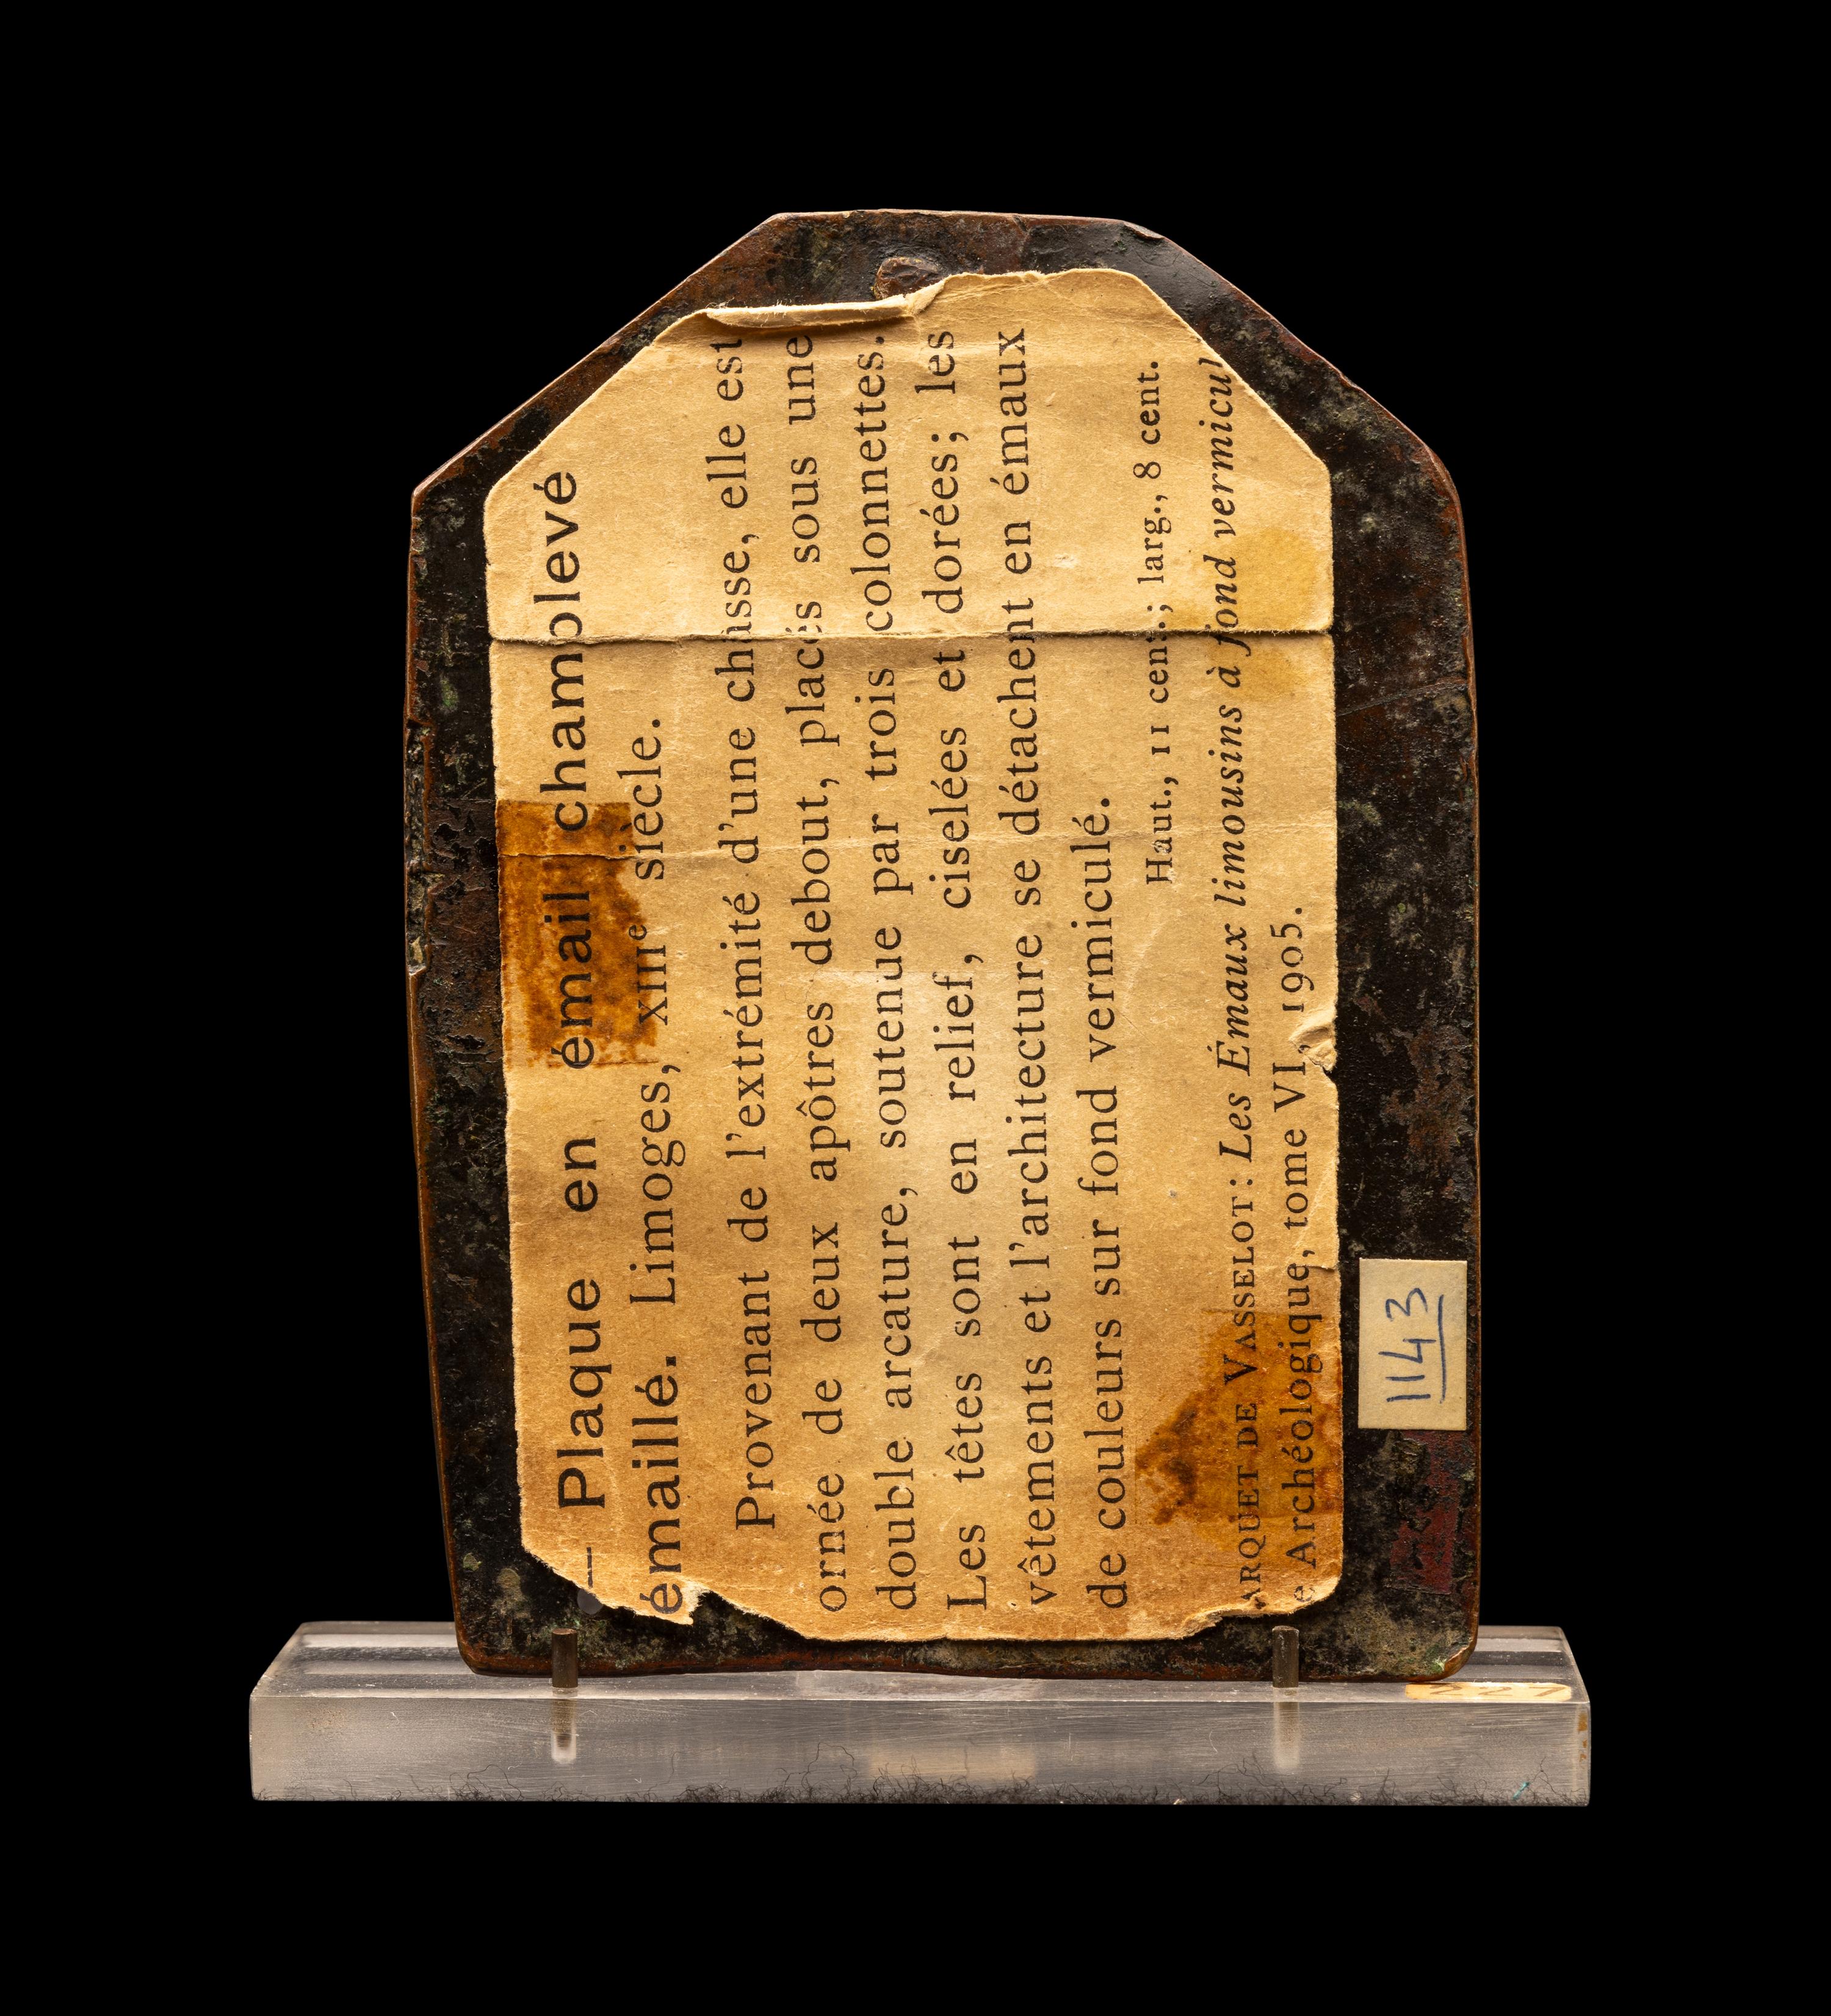 — Plaque en émail champlevé
émaillé. Limoges, XIIIe siècle.
Provenant de l'extrémité d'une châsse, elle est
ornée de deux apôtres debout, placés sous une
double arcature, soutenue par trois colonnettes.
Les têtes sont en relief, ciselées et dorées; les
vêtements et l'architecture se détachent en émaux
de couleurs sur fond vermiculé.
Haut., 11 cent.; larg., 8 cent.
ARQUET DE VASSELOT: Les Émaux limousins à fond vermicul
e Archéologique, tome VI, 1905.
1143